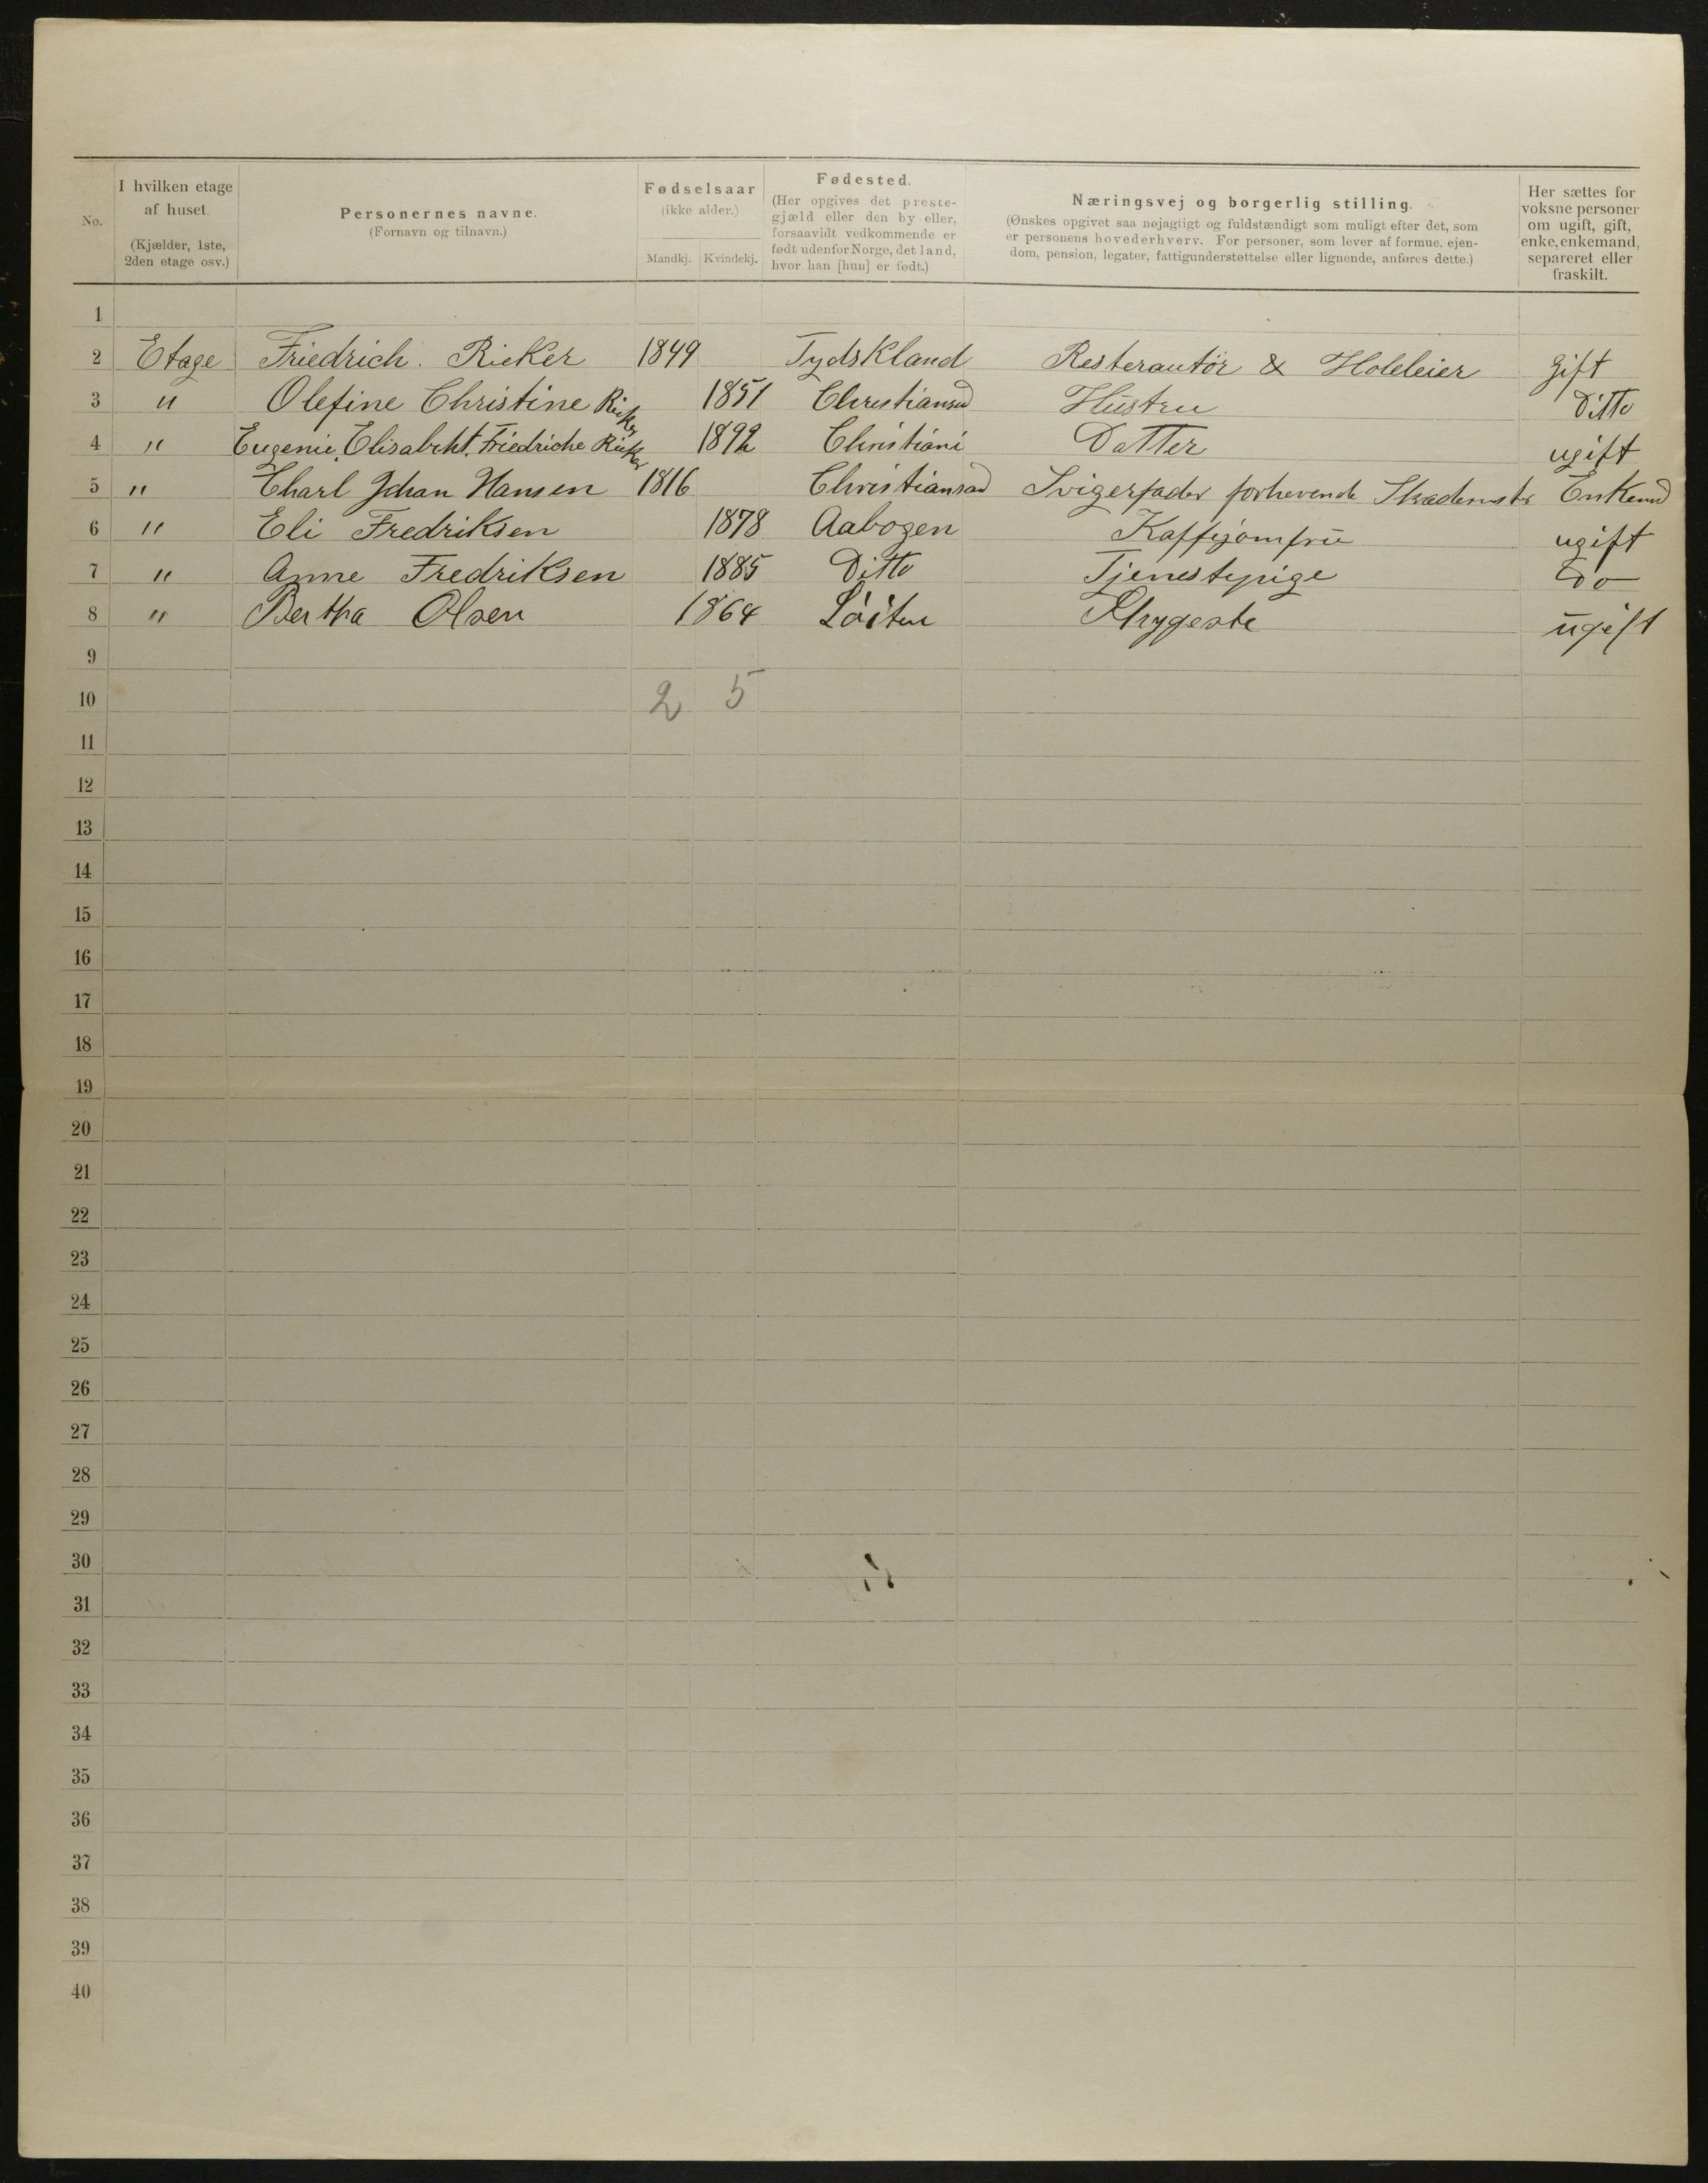 No.
I hvilken etage af huset.
(Kjælder, 1ste, 2den etage osv.)
Personernes navne.
(Fornavn og tilnavn.)
Fødselsaar
(ikke alder.)
Mandkj. Kvindekj.
Fødested.
(Her opgives det preste-
gjæld eller den by eller,
forsaavidt vedkommende er
født udenfor Norge, det land,
hvor han [hun] er født.)
Næringsvej og borgerlig stilling.
(Ønskes opgivet saa nøjagtigt og fuldstændigt som muligt efter det, som
er personens hovederhverv. For personer, som lever af formue, ejen-
dom, pension, legater, fattigunderstøttelse eller lignende, anføres dette.)
Her sættes for
voksne personer
om ugift, gift,
enke, enkemand,
separeret eller
fraskilt.
1
2 Etage Friedrich. Rieker 1849 Tydskland Resterautör & Holeleier gift
3 " Olefine Christine Rieker 1851 Christiansd Hustru Ditto
4 " Eugenie, Elisabeht. Friedriche Rieker 1892 Christiani Datter ugift
5 " Charl Johan Hansen 1816 Christiansand Svigerfader forhevende Enkemd
6 " Eli Fredriksen 1878 Aabogen Kaffijomfru ugift
7 " Anne Fredriksen 1885 Ditto Tjenestepige Do
8 " Bertha Olsen 1864 Löiten Strygeste ugift
9
10 2 5
11
12
13
14
15
16
17
18
19
20
21
22
23
24
25
26
27
28
29
30
31
32
33
34
35
36
37
38
39
40